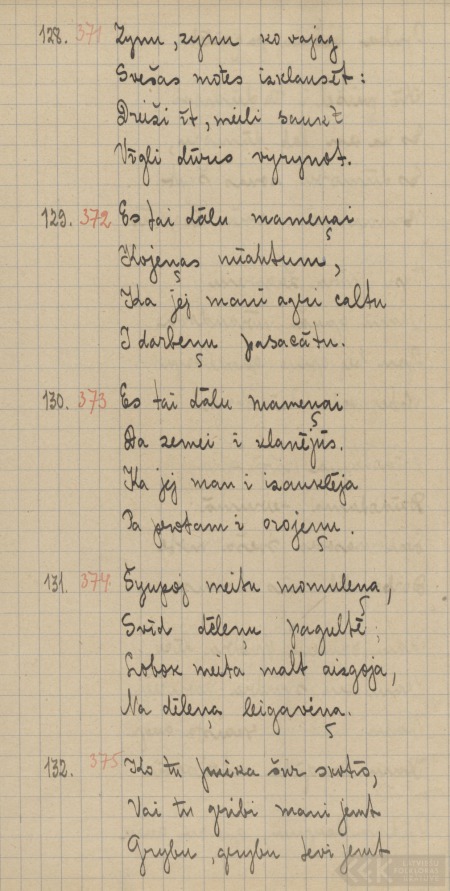 128. 371 Zynu, zynu ko vajag
Svešas mōtes izklausēt:
Dreiži īt, meili saukt
Vīgli dūris vyrynot.
129. 372 Es tai dālu mameņai
Kojeņas
Ka jej mani agri caltu
I darbeņu pasacātu.
130. 373 Es tai dālu mameņai
Da zemei i klanējūs.
Ka jej man i izauklēja
Pa protam i orojeņu.
131. 374. Šyupoj meitu momuleņa,
Svīd dēleņu pagultē;
Lobok meita malt aizgoja,
Na dēleņa leigaviņa.
132. 375 Ko tu puika šur skotīs,
Vai tu gribi mani jemt
Grybu, grybu tevi jemt